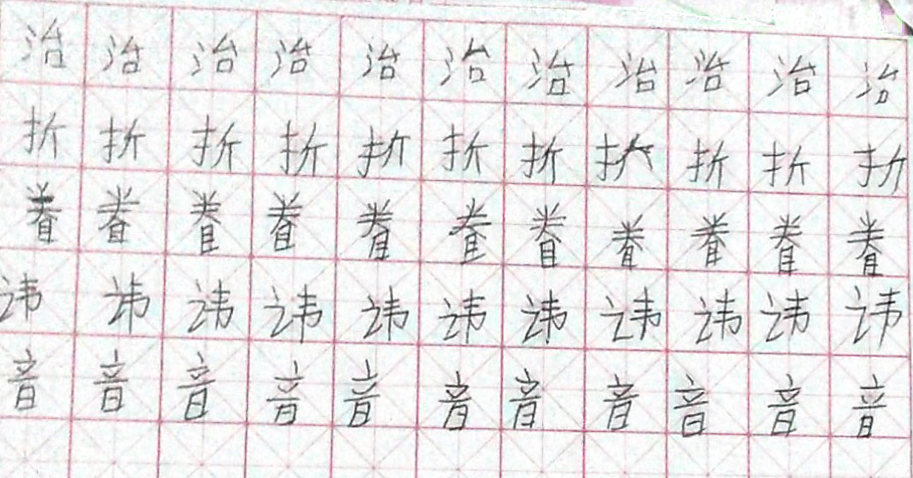 治治治治治治治治治治治
折折折折折折折折折折折
眷眷眷眷眷眷眷眷眷眷眷
讳讳讳讳讳讳讳讳讳讳讳
音音音音音音音音音音音